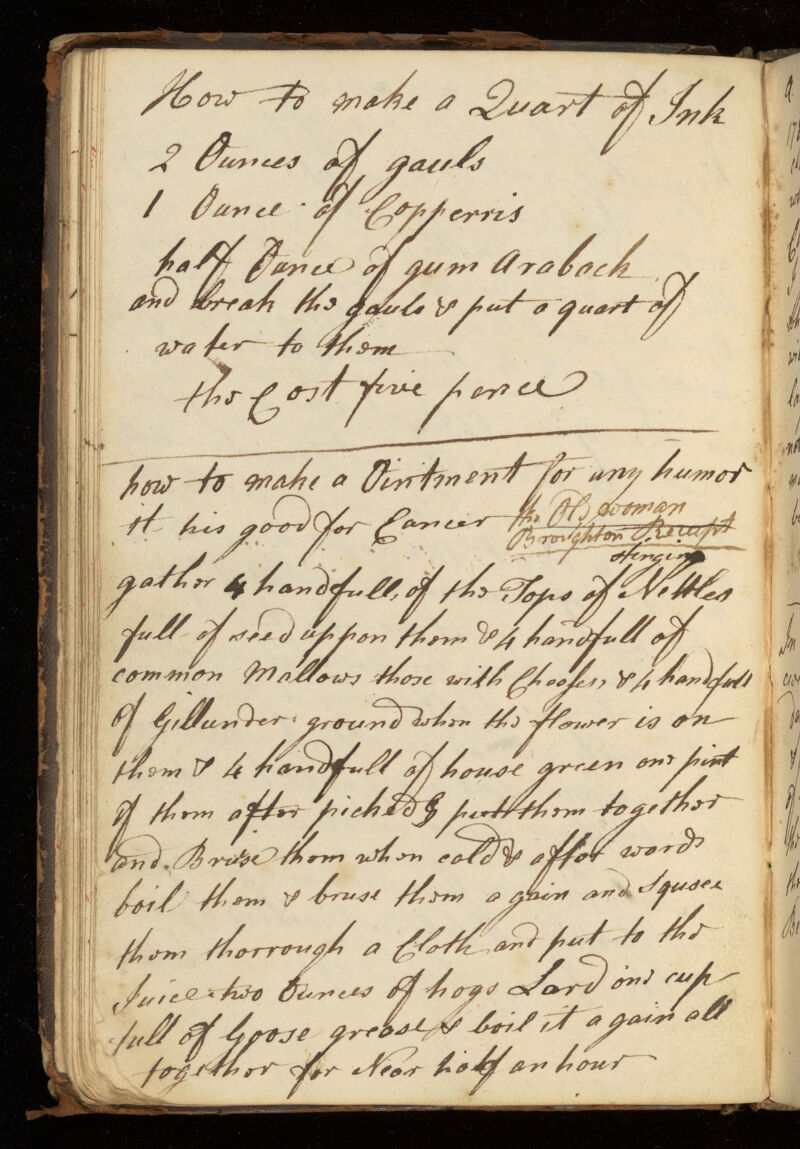 How to make a Quart of Ink
2 Ounces of gauls
1 Ounce of Copperris
half Ounce of gum Araback
and break the gauls & put a quart of
water to them
the Cost five pence
how to make a Ointment for any humor
it his good for Cancer the Old woman
Broughton Receipt
stinging
gather 4 handfull of the Tops of Nettles
full of seed uppon them & 4 handfull of
common Mallows those with Cheeses & 4 handfull
of Gillunder ground when the flower is on
them & 4 handfull of house green one pint
of them after picked & put them together
and Bruise them when cold & after words
boil them & bruse them a gain and Squsee
them thorrough a Cloth and put to the
Juice two Ounces of hogs Lard one cup
full of Goose grease & boil it a gain all
together for Near half an hour